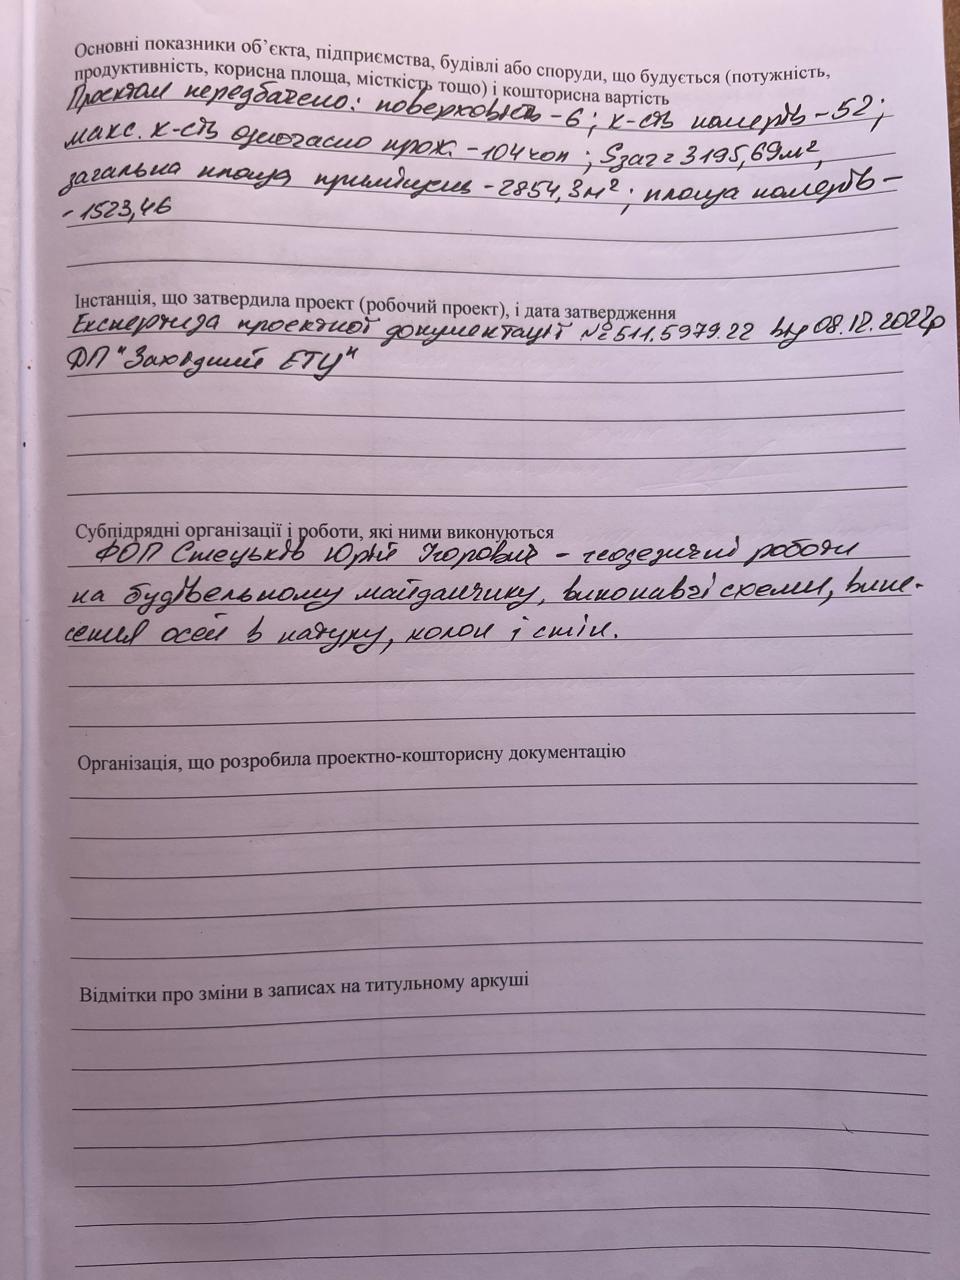 Основні показники об’єкта, підприємства, будівлі або споруди, що будується (потужність,
продуктивність, корисна площа, місткість тощо) і кошторисна вартість
Проєктом передбачено: поверховість - 6; к-сть номерів - 52;
макс. к-сть одночасно прож. - 104 чол; Sзаг = 3195,69м²,
загальна площа приміщень - 2854,3м²; площа номерів -
- 1523,46
Інстанція, що затвердила проект (робочий проект), і дата затвердження
Експертиза проектної документації №511.5979.22 від 08.12.2022р
ДП "Західний ЕТЦ"
Субпідрядні організації і роботи, які ними виконуються
ФОП Стецьків Юрій Ігорович - геодезичні роботи
на будівельному майданчику, виконавчі схеми, вине-
сення осей в натуру, колон і стін.
Організація, що розробила проектно-кошторисну документацію
Відмітки про зміни в записах на титульному аркуші